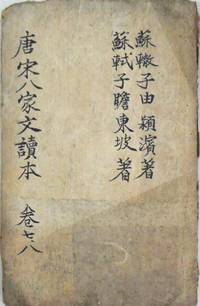 蘇轍子由 穎濱著
蘇軾子瞻東坡 著
唐宋八家文讀本 卷七、八